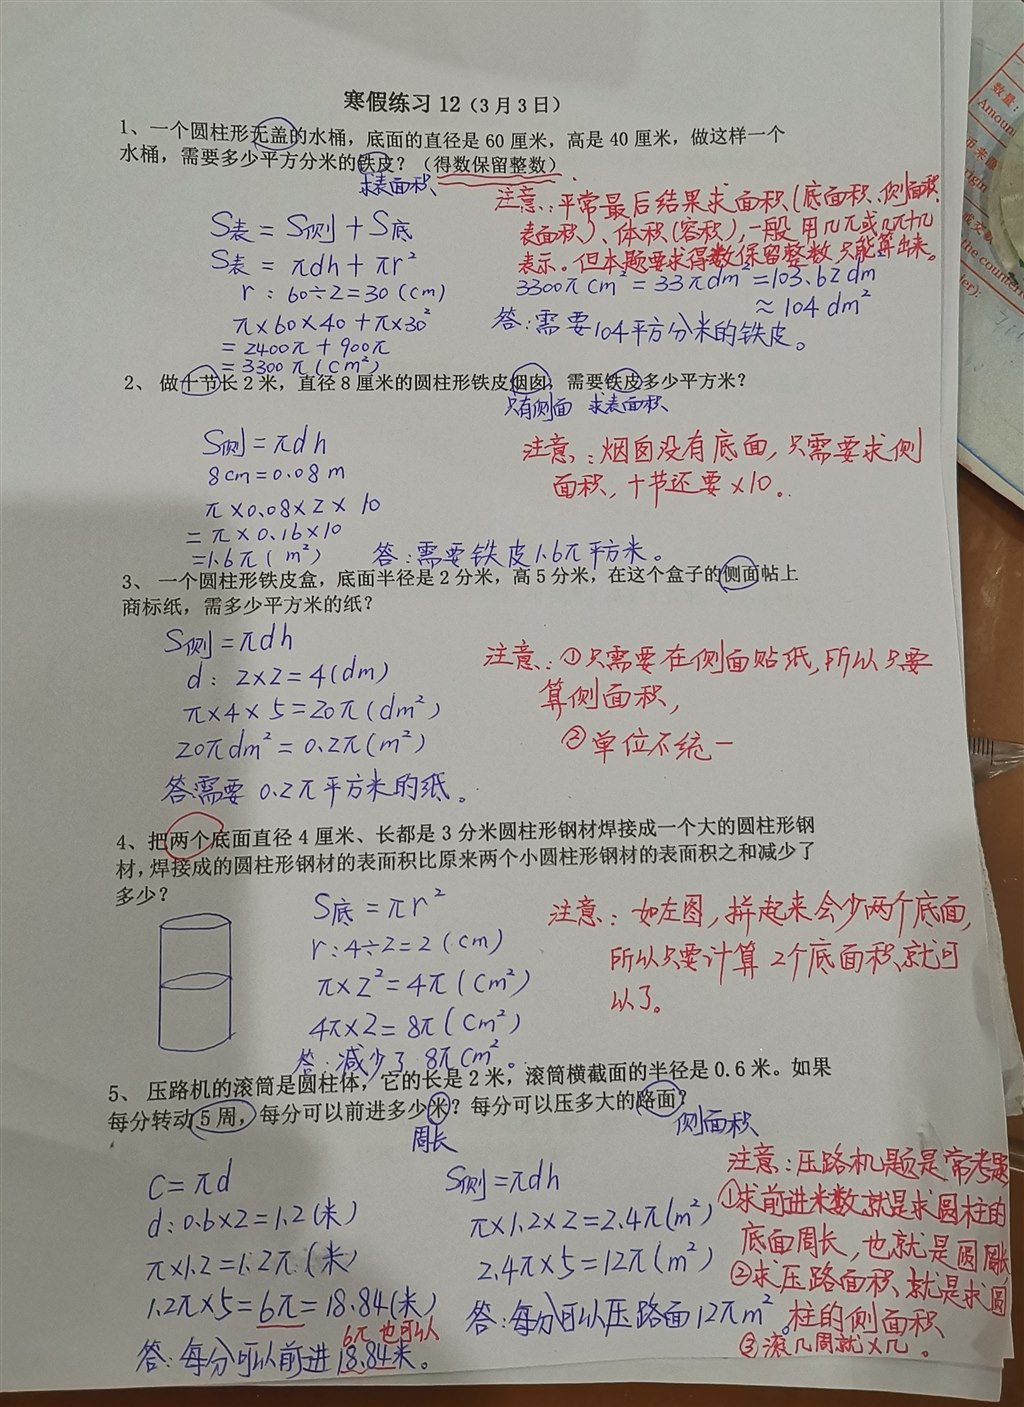 寒假练习 12（3 月 3 日）
1、一个圆柱形无盖的水桶，底面的直径是 60 厘米，高是 40 厘米，做这样一个
水桶，需要多少平方分米的铁皮？（得数保留整数）
求表面积
注意：平常最后结果求面积(底面积、侧面积、
表面积)、体积(容积)，一般用几π或几π+几
表示。但本题要求得数保留整数,只能算出来。
S表 = S侧 + S底
S表 = πdh + πr²
r：60÷2=30 (cm)
π×60×40 +π×30²
= 2400π + 900π
= 3300π (cm²)
3300π cm² = 33π dm² = 103.62 dm²
≈ 104 dm²
答：需要104平方分米的铁皮。
2、 做十节长 2 米，直径 8 厘米的圆柱形铁皮烟囱，需要铁皮多少平方米？
只有侧面 求表面积
S侧 = πdh
8cm = 0.08 m
π×0.08×2×10
= π×0.16×10
=1.6π ( m²)
注意：烟囱没有底面，只需要求侧
面积，十节还要×10。
答：需要铁皮1.6π平方米。
3、 一个圆柱形铁皮盒，底面半径是 2 分米，高 5 分米，在这个盒子的侧面帖上
商标纸，需多少平方米的纸？
S侧 = πdh
d： 2×2 = 4(dm)
π×4×5 =20π(dm²)
20π dm² = 0.2π(m²)
答:需要 0.2π平方米的纸。
注意：①只需要在侧面贴纸,所以只要
算侧面积,
②单位不统一
4、把两个底面直径 4 厘米、长都是 3 分米圆柱形钢材焊接成一个大的圆柱形钢
材，焊接成的圆柱形钢材的表面积比原来两个小圆柱形钢材的表面积之和减少了
多少？
S底 = πr²
r：4÷2=2 (cm)
π×2²=4π (cm²)
4π×2= 8π(cm²)
答：减少了 8πcm²。
注意：如左图，拼起来会少两个底面,
所以只要计算 2个底面积,就可
以了。
5、 压路机的滚筒是圆柱体，它的长是 2 米，滚筒横截面的半径是 0.6 米。如果
每分转动 5 周，每分可以前进多少米？每分可以压多大的路面？
周长
侧面积
C= πd
d：0.6×2=1.2(米)
π×1.2=1.2π (米)
1.2π×5 = 6π = 18.84(米)
6π 也可以
答：每分可以前进18.84米。
S侧=πdh
π×1.2×2=2.4π(m²)
2.4π×5 =12π(m²)
答：每分可以压路面12πm²。
注意：压路机题是常考题
①求前进米数,就是求圆柱的
底面周长，也就是圆周长
②求压路面积,就是求圆
柱的侧面积
③滚几周就×几。
数量：
Amoun